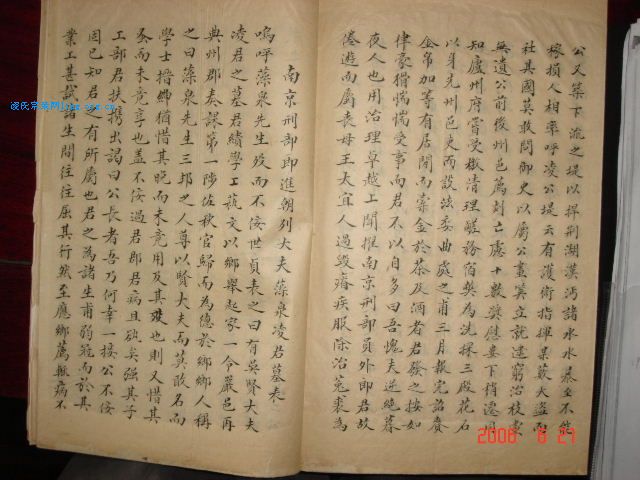 公又筑下流之堤以捍荆湖漢沔諸水水暴至不能
稼損人相率呼凌公堤云有護術指揮某藪大盜而
社其國莫敢問御史以屬公畫冀立就逮窮治枝
無遺公前後州邑薦剡亡慮十數
知廬州府嘗受檄清理醝務宿弊為洗採三殿花石
以身先州邑吏而設法委曲處之甫三月報完詔賚
金帛加等有居間而橐金於茶及酒者君發之按如
律豪猾惴惴受事而君不以自多曰吾愧夫逆絶暮
夜人也用治理卓越上聞擢南京刑部員外郎君故
倦遊而屬喪母王太宜人過毀癠疾服除治菟裘為
南京刑部郎進朝列大夫藻泉凌君墓表
嗚呼藻泉先生歿而不佞世貞表之曰有吳賢大夫
凌君之墓君績學工蓺文以鄉舉起家一令嚴邑再
典州郡奏課第一陟佐秋官歸而為德於鄉鄉人稱
之曰藻泉先生三邦之人尊以賢大夫而莫敢名而
學士搢紳猶惜其晚而未竟用及其歿也則又惜其
蚤而未竟享也蓋不佞過君郡君病且欲矣强其子
工部君扶携出謁曰公長者吾乃何幸一接公不佞
固已知君之有所屬也君之為諸生甫弱冠而於其
業工甚試諸生間往往屈其行然至應鄉薦輒病不
凌氏宗族网
2008 8 27